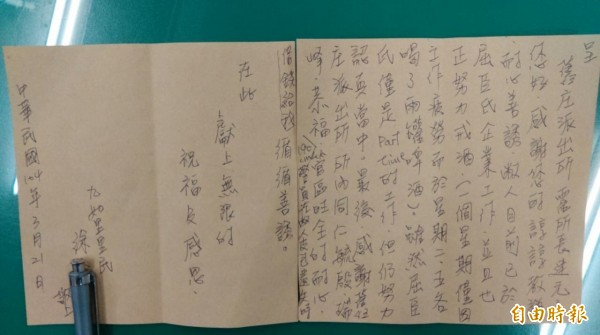 呈
舊庄派出所 雷所長建元
您好 感謝您時諄諄教誨
耐心善誘 敝人目前已於
屈臣氏企業工作,並且也
正努力戒酒(一個星期僅因
工作疲勞而於星期二、五各
喝了兩罐啤酒)。雖然屈臣
氏僅是Part time的工作,但仍努力
認真當中。最後,感謝舊
庄派出所所內同仁毓殷瑞
峰、恭福管區時全的耐心
循循善誘。
在此
獻上無限的
祝福與感恩.
九如里里民
涂
中華民國104年3月21日
自由時報